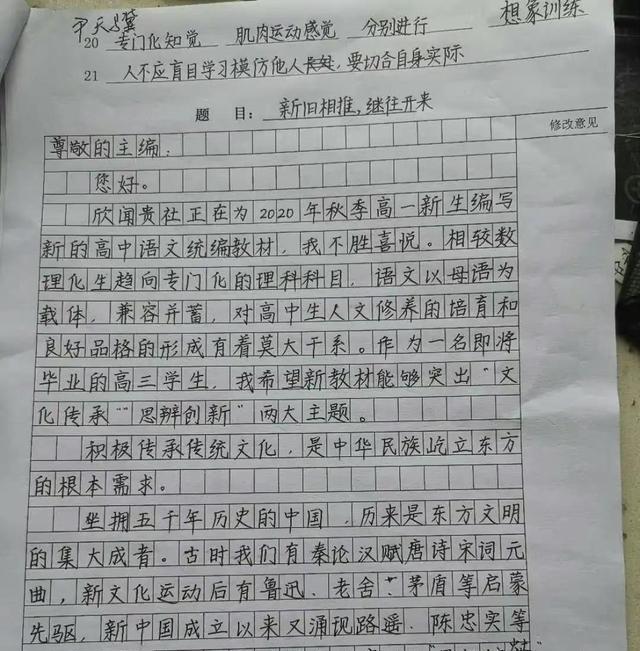 20 专门化知觉 肌肉运动感觉 分别进行 想象训练
21 人不应盲目学习模仿他人长处，要切合自身实际
题 目：新旧相推，继往开来
修改意见
尊敬的主编：
您好。
欣闻贵社正在为2020年秋季高一新生编写
新的高中语文统编教材，我不胜喜说。相较数
理化生趋向专门化的理科科目，语文以母语为
载体，兼容并蓄，对高中生人文修养的培育和
良好品格的形成有着莫大干系。作为一名即将
毕业的高三学生，我希望新教材能够突出“文
化传承”“思辨创新”两大主题。
积极传承传统文化，是中华民族屹立东方
的根本需求。
坐拥五千年历史的中国，历来是东方文明
的集大成者。古时我们有秦论汉赋唐诗宋词元
曲，新文化运动后有鲁迅、老舍、茅盾等启蒙
先驱，新中国成立以来又涌现路遥、陈忠实等